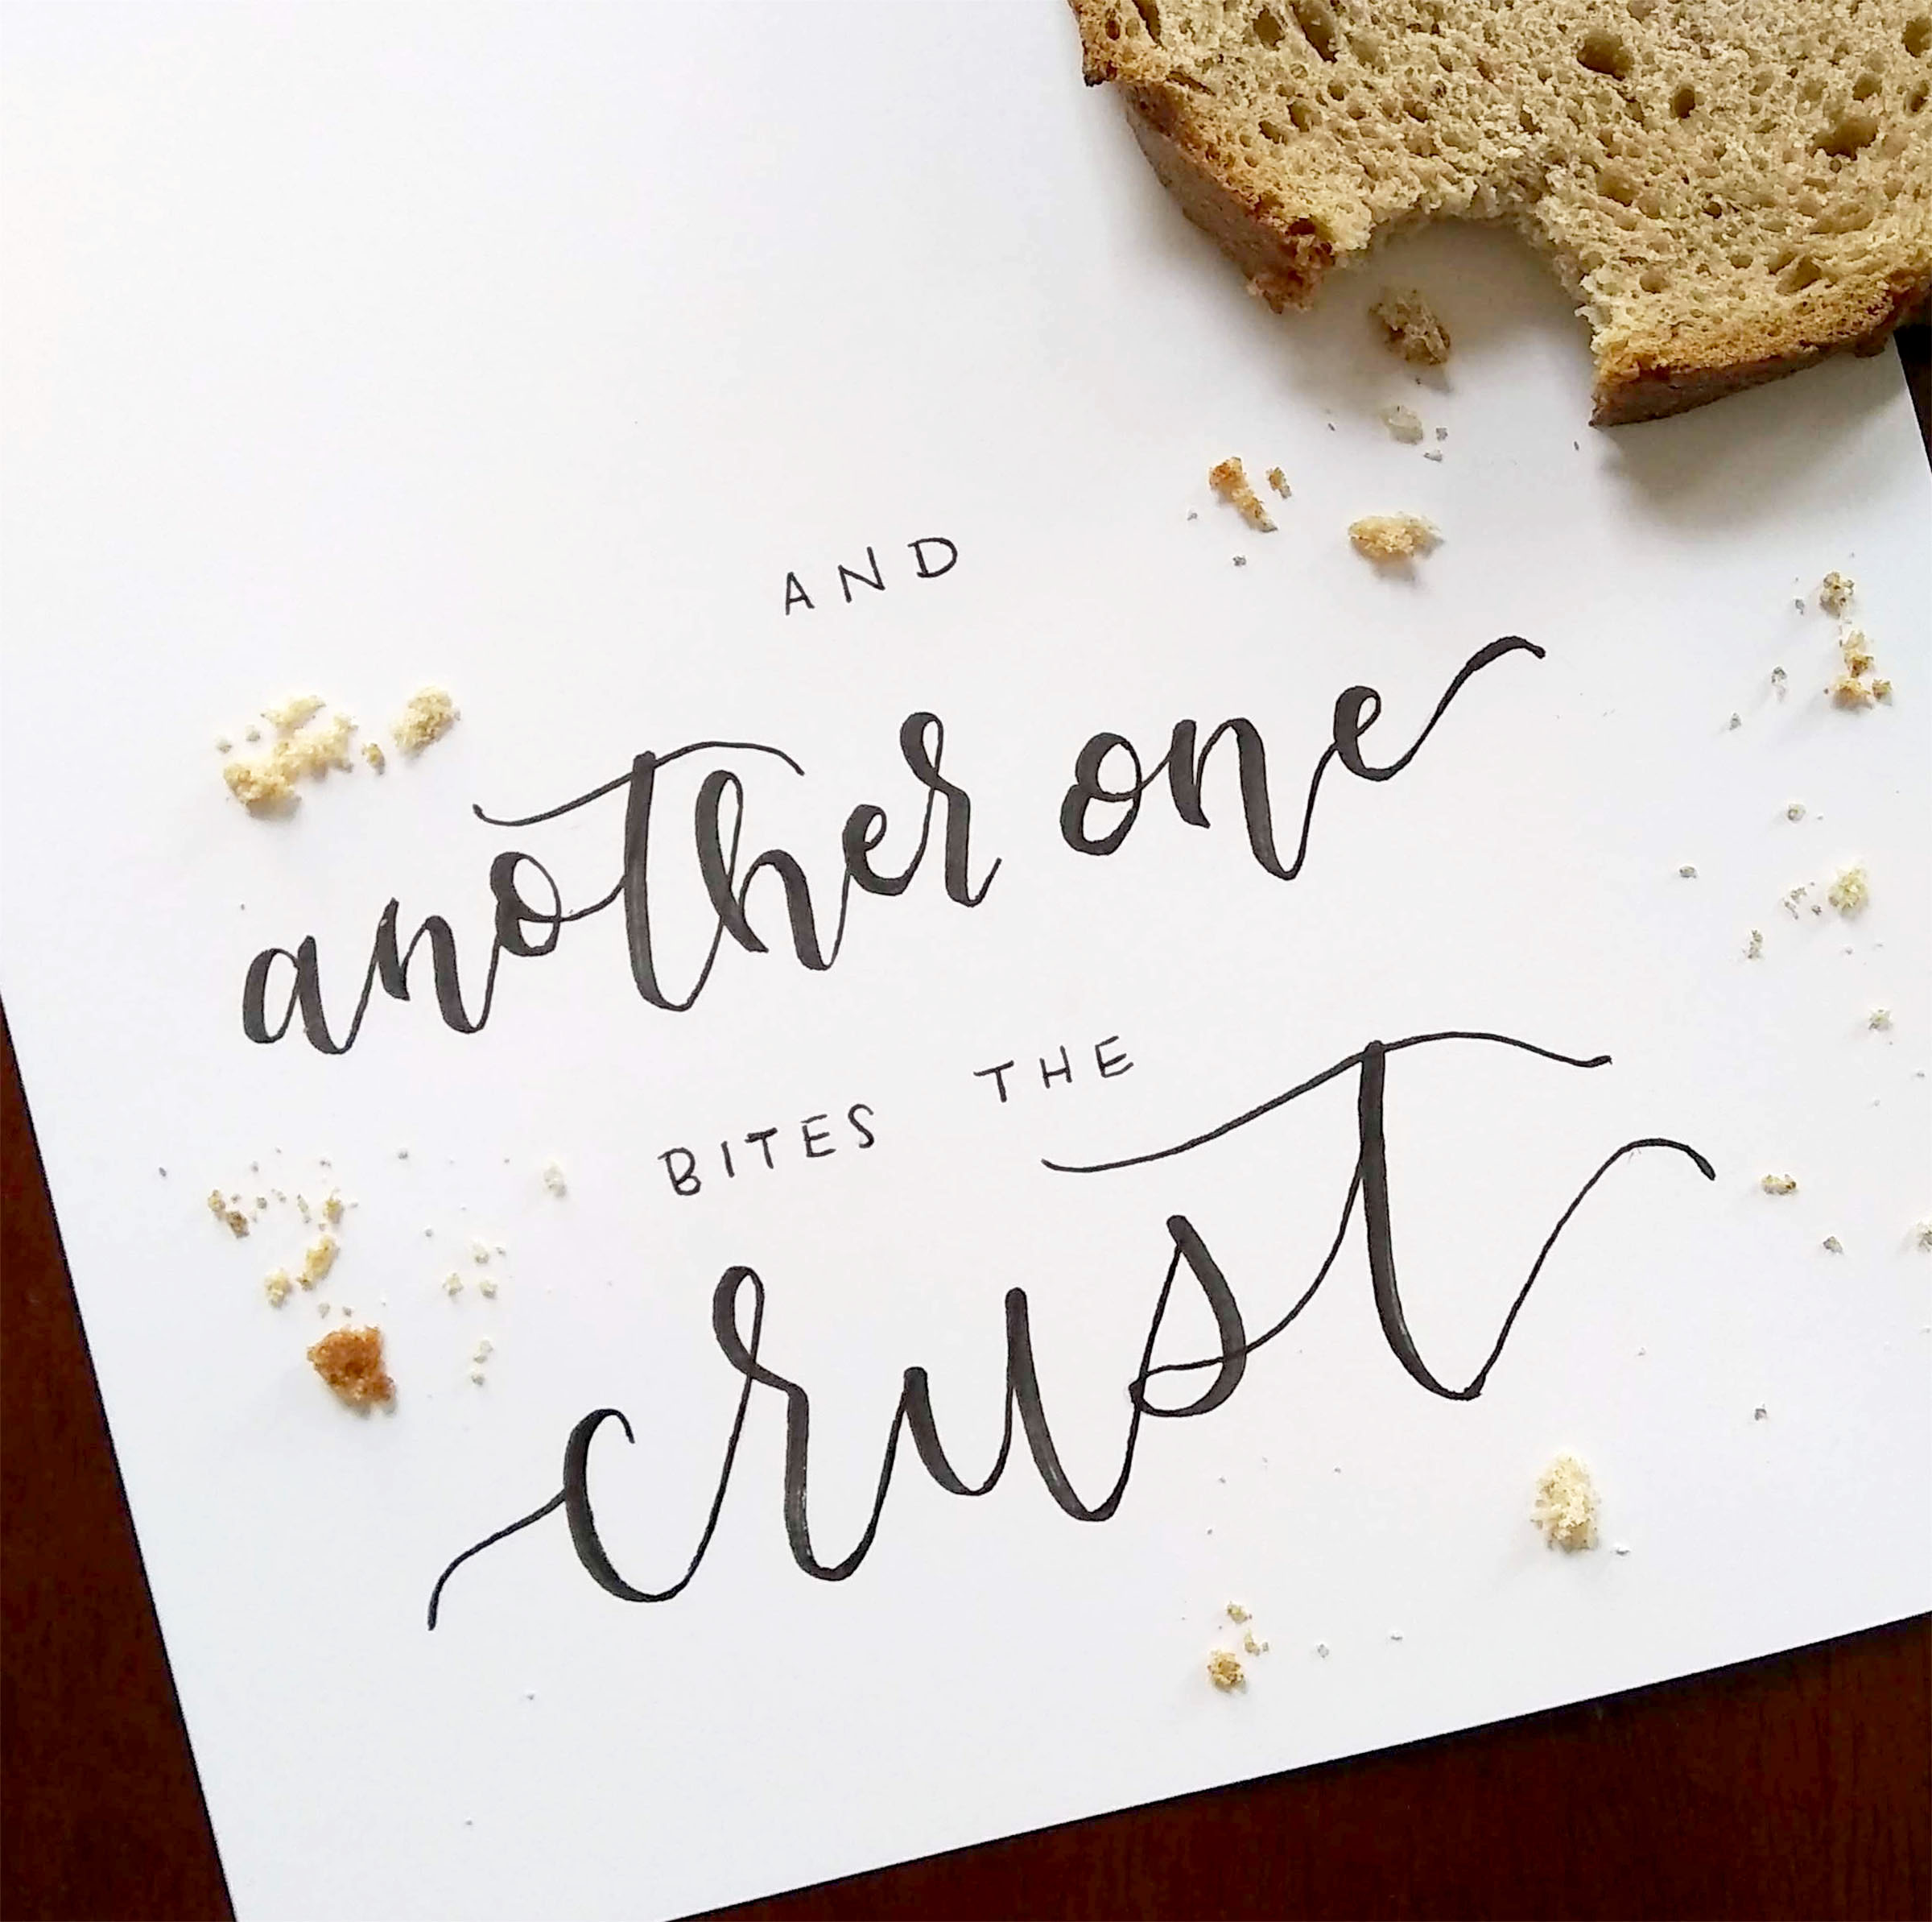 AND
another one
BITES THE
crust